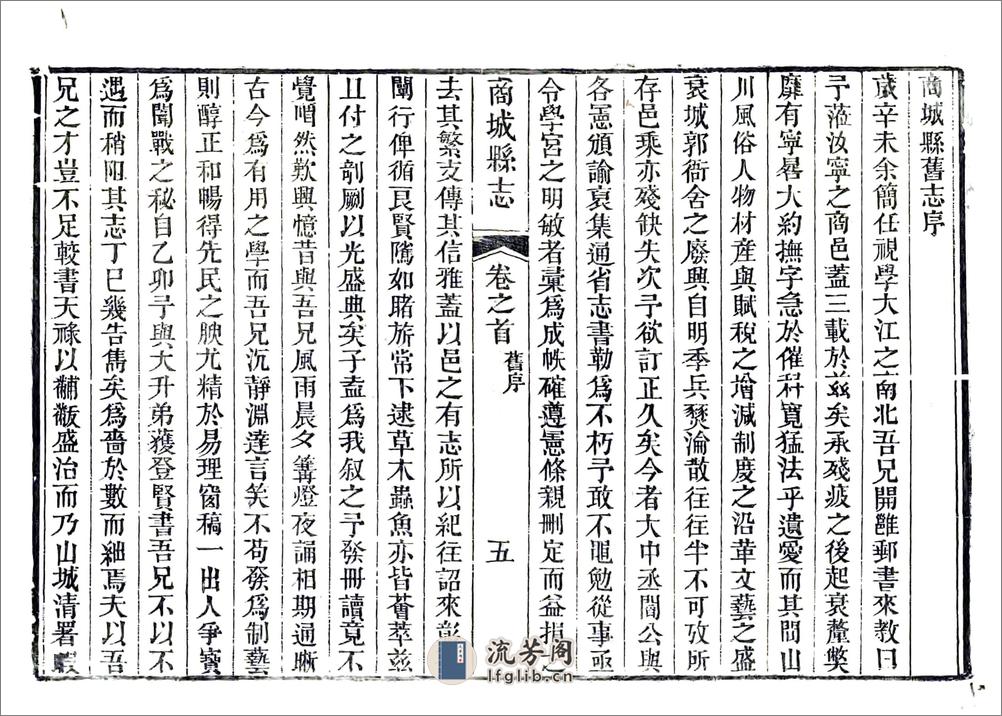 商城縣舊志序
歲辛未余簡任視學大江之南北吾兄開雝郵書來教曰
予蒞汝寧之商邑蓋三載於茲矣承殘疲之後起衰釐獘
靡有寧晷大約撫字急於催科寬猛法乎遺愛而其間山
川風俗人物材產與賦稅之增減制度之沿革文藝之盛
衰城郭衙舍之廢興自明季兵燹淪散往往半不可攷所
存邑乘亦殘缺失次予欲訂正久矣今者大中丞閻公與
各憲頒諭裒集通省志書勒為不朽予敢不黽勉從事亟
令學宮之明敏者彙為成帙確遵憲條親刪定而益損之
商城縣志
卷之首
舊序
五
去其繁支傳其信雅蓋以邑之有志所以紀往詔來彰
闡行俾循良賢隲如睹旂常下逮草木蟲魚亦皆薈萃茲
且付之剞劂以光盛典矣子盍為我叙之予發冊讀竟不
覺喟然歎興憶昔與吾兄風雨晨夕篝燈夜誦相期通晰
古今為有用之學而吾兄沉静淵達言笑不苟發為制藝
則醇正和暢得先民之腴尤精於易理窗稿一出人爭寶
為闈戰之秘自乙卯予與大升弟獲登賢書吾兄不以不
遇而稍阻其志丁巳幾告雋矣為嗇於數而絀焉夫以吾
兄之才豈不足較書天祿以黼黻盛治而乃山城清署
流芳阁
lfglib.cn